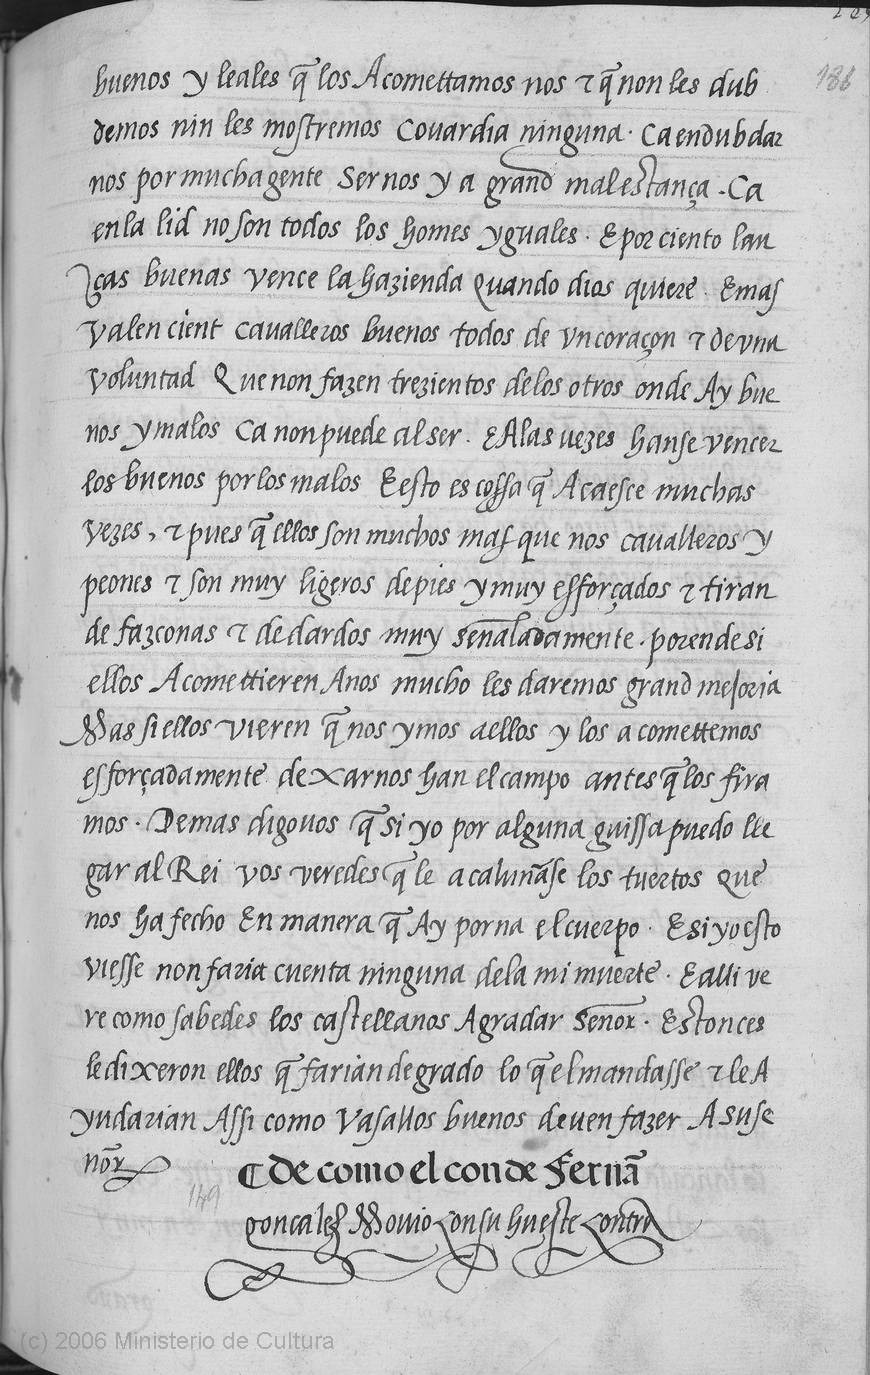 188
buenos y leales q̃ los Acomettamos nos τ q̃ non les dub
demos nin les mostremos Couardia ninguna · Ca en dubdar
nos por mucha gente Ser nos y a grand malestança · Ca
en la lid no son todos los homes yguales · E por ciento lan
ças buenas vence la hazienda Quando dios quiere · E mas
valen cient cavalleros buenos todos de vn coraçon τ de vna
voluntad Que non fazen trezientos de los otros onde Ay bue
nos y malos Ca non puede al ser · E A las vezes hanse vencer
los buenos por los malos E esto es cossa q̃ Acaesce muchas
vezes, τ pues q̃ ellos son muchos mas que nos cavalleros y
peones τ son muy ligeros de pies y muy esforçados τ tiran
de fazconas τ de dardos muy señaladamente · por ende si
ellos Acomettieren Anos mucho les daremos grand mejoria
Mas si ellos vieren q̃ nos ymos a ellos y los acomettemos
esforçadamente dexarnos han el campo antes q̃ los fira
mos · Demas digouos q̃ si yo por alguna guissa puedo lle
gar al Rei vos veredes q̃ le acaluñase los tuertos que
nos ha fecho En manera q̃ Ay porna el cuerpo · E si yo esto
viesse non faria cuenta ninguna de la mi muerte · E alli ve
re como sabedes los castellanos Agradar Señor · Estonces
le dixeron ellos q̃ farian de grado lo q̃ el mandasse τ le A
yudarian Assi como Vasallos buenos deuen fazer A su se
ñor
¶ De como el conde Fernã
149
gonçalez Mouio con su hueste contra
(c) 2006 Ministerio de Cultura